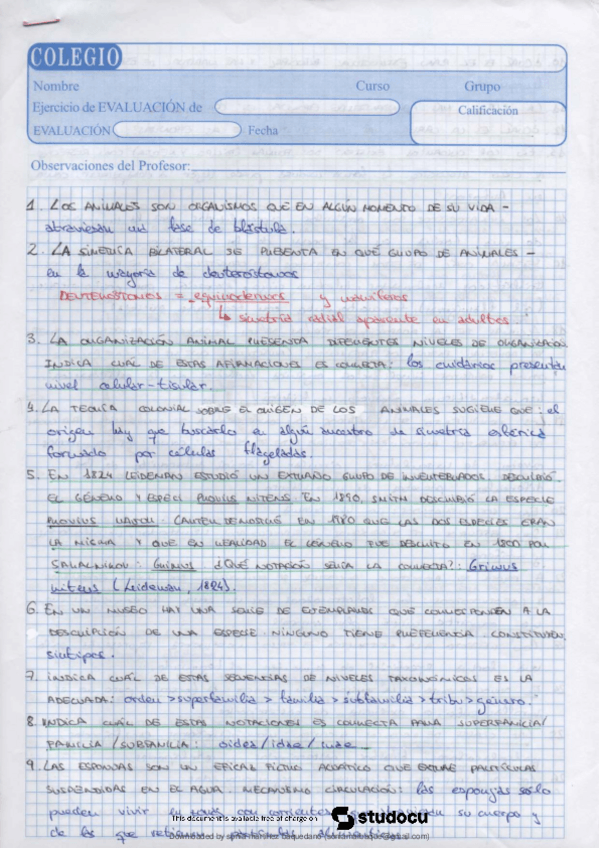 COLEGIO
Nombre Curso Grupo
Ejercicio de EVALUACIÓN de Calificación
EVALUACIÓN Fecha
Observaciones del Profesor:
1. LOS ANIMALES SON ORGANISMOS QUE EN ALGÚN MOMENTO DE SU VIDA -
atraviesan una fase de blástula.
2. LA SIMETRÍA BILATERAL SE PRESENTA EN QUÉ GRUPO DE ANIMALES -
en la mayoría de deuterostomos
DEUTEROSTOMOS = equinodermos y
↳ simetría radial aparente en adultos
3. LA ORGANIZACIÓN ANIMAL PRESENTA DIFERENTES NIVELES DE ORGANIZACIÓN
INDICA CUÁL DE ESTAS AFIRMACIONES ES CORRECTA: los cnidarios presentan
nivel celular-tisular.
4. LA TEORÍA COLONIAL SOBRE EL ORIGEN DE LOS ANIMALES SUGIERE QUE: el
origen hay que buscarlo en algún ancestro de simetría esférica
formado por células flageladas.
5. EN 1824 LEIDEMAN ESTUDIÓ UN EXTRAÑO GRUPO DE INVERTEBRADOS. DESCRIBIÓ
EL GÉNERO Y ESPECI NITENS EN 1890, SMITH DESCRIBIÓ LA ESPECIE
CARTER DEMOSTRÓ EN 1980 QUE LAS DOS ESPECIES ERAN
LA MISMA Y QUE EN REALIDAD EL GÉNERO FUE DESCRITO EN 1800 POR
¿QUÉ NOTACIÓN SERÍA LA CORRECTA?: Grimus
nitens (Leideman, 1824).
6. EN UN MUSEO HAY UNA SERIE DE EJEMPLARES QUE CORRESPONDEN A LA
DESCRIPCIÓN DE UNA ESPECIE. NINGUNO TIENE PREFERENCIA. CONSTITUYEN,
sintipos.
7. INDICA CUÁL DE ESTAS SECUENCIAS DE NIVELES TAXONÓMICOS ES LA
ADECUADA: orden > superfamilia > familia > subfamilia > tribu > género.
8. INDICA CUÁL DE ESTAS NOTACIONES ES CORRECTA PARA SUPERFAMILIA/
FAMILIA/SUBFAMILIA: oidea/idae/inae
9. LAS ESPONJAS SON UN EFICAZ FILTRO ACUÁTICO QUE EXTRAE PARTÍCULAS
SUSPENDIDAS EN EL AGUA. MECANISMO CIRCULACIÓN: las esponjas sólo
pueden vivir en con corrientes que su cuerpo y
de las que
This document is available free of charge on studocu
Downloaded by